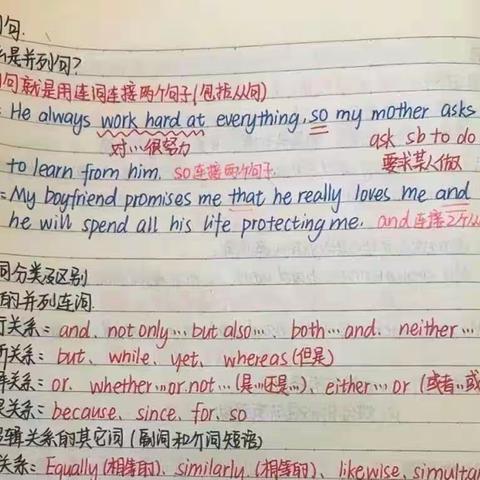 句.
是并列句?
句就是用连词连接两个句子(包括从句)
: He always work hard at everything, so my mother asks
对…很努力 ask sb to do
to learn from him. so连接两个句子 要求某人做
: My boyfriend promises me that he really loves me and
he will spend all his life protecting me. and连接2个从
词分类及区别
的并列连词
关系: and、not only… but also…、both… and、neither…
关系: but、while、yet、whereas(但是)
关系: or、whether…or not…(是…还是…)、either… or (或者…或
关系: because、since、for、so
逻辑关系的其它词(副词和介词短语)
关系: Equally(相等的)、similarly.(相等的)、likewise、simultan